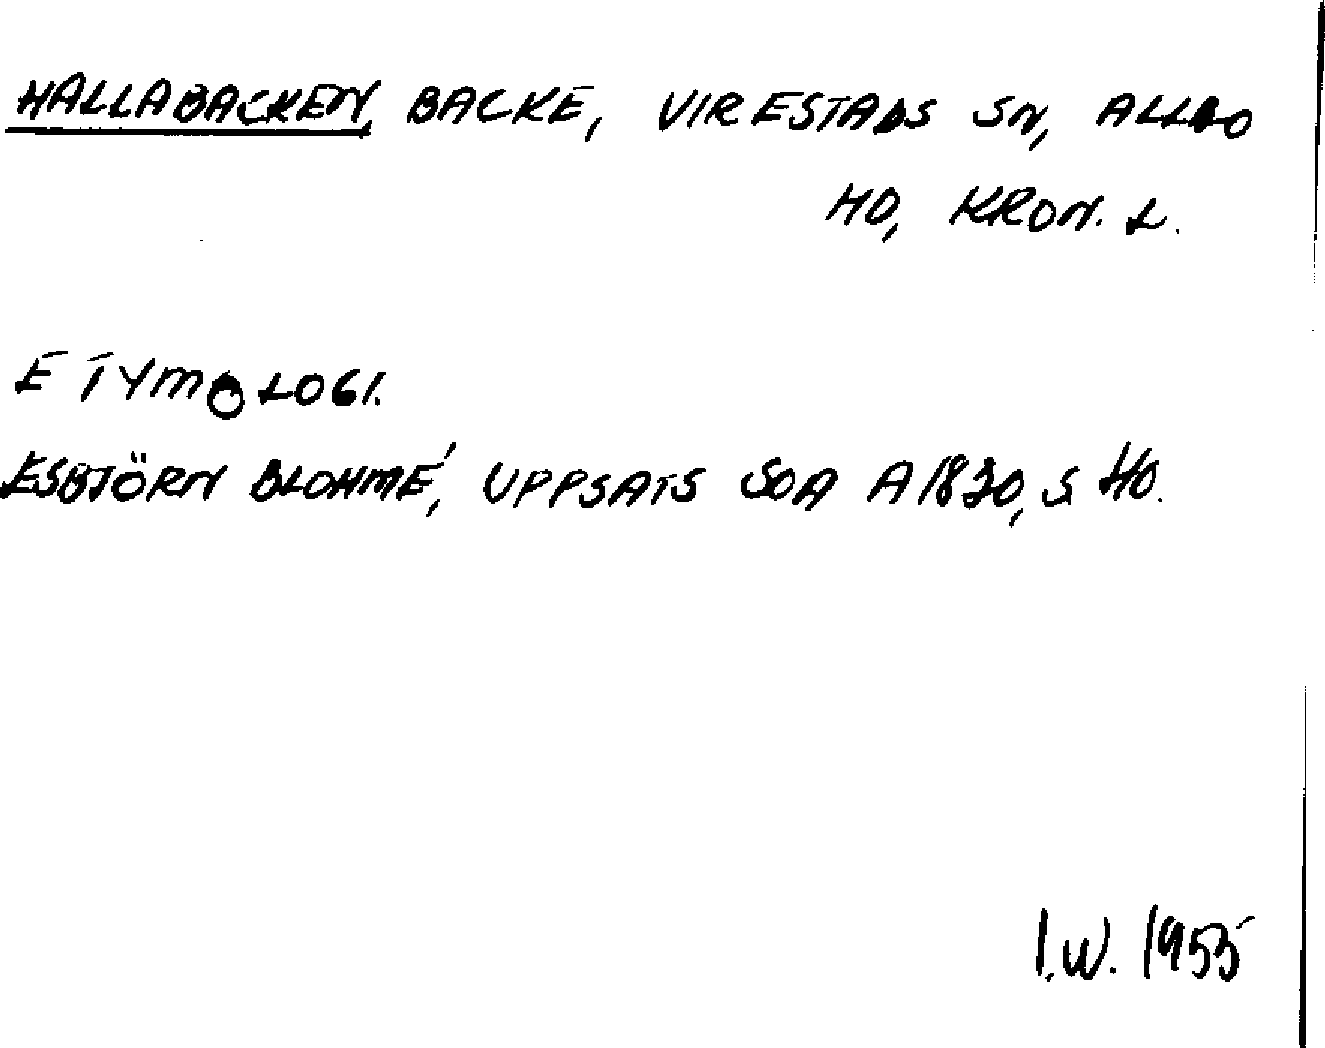 HALLABACKEN, BACKE, VIRESTADS SN, ALLBO
HD, KRON. L.
ETYMOLOGI.
ESBJÖRN BLOHMÉ, UPPSATS SOA A 1830, S 40.
I.W. 1955